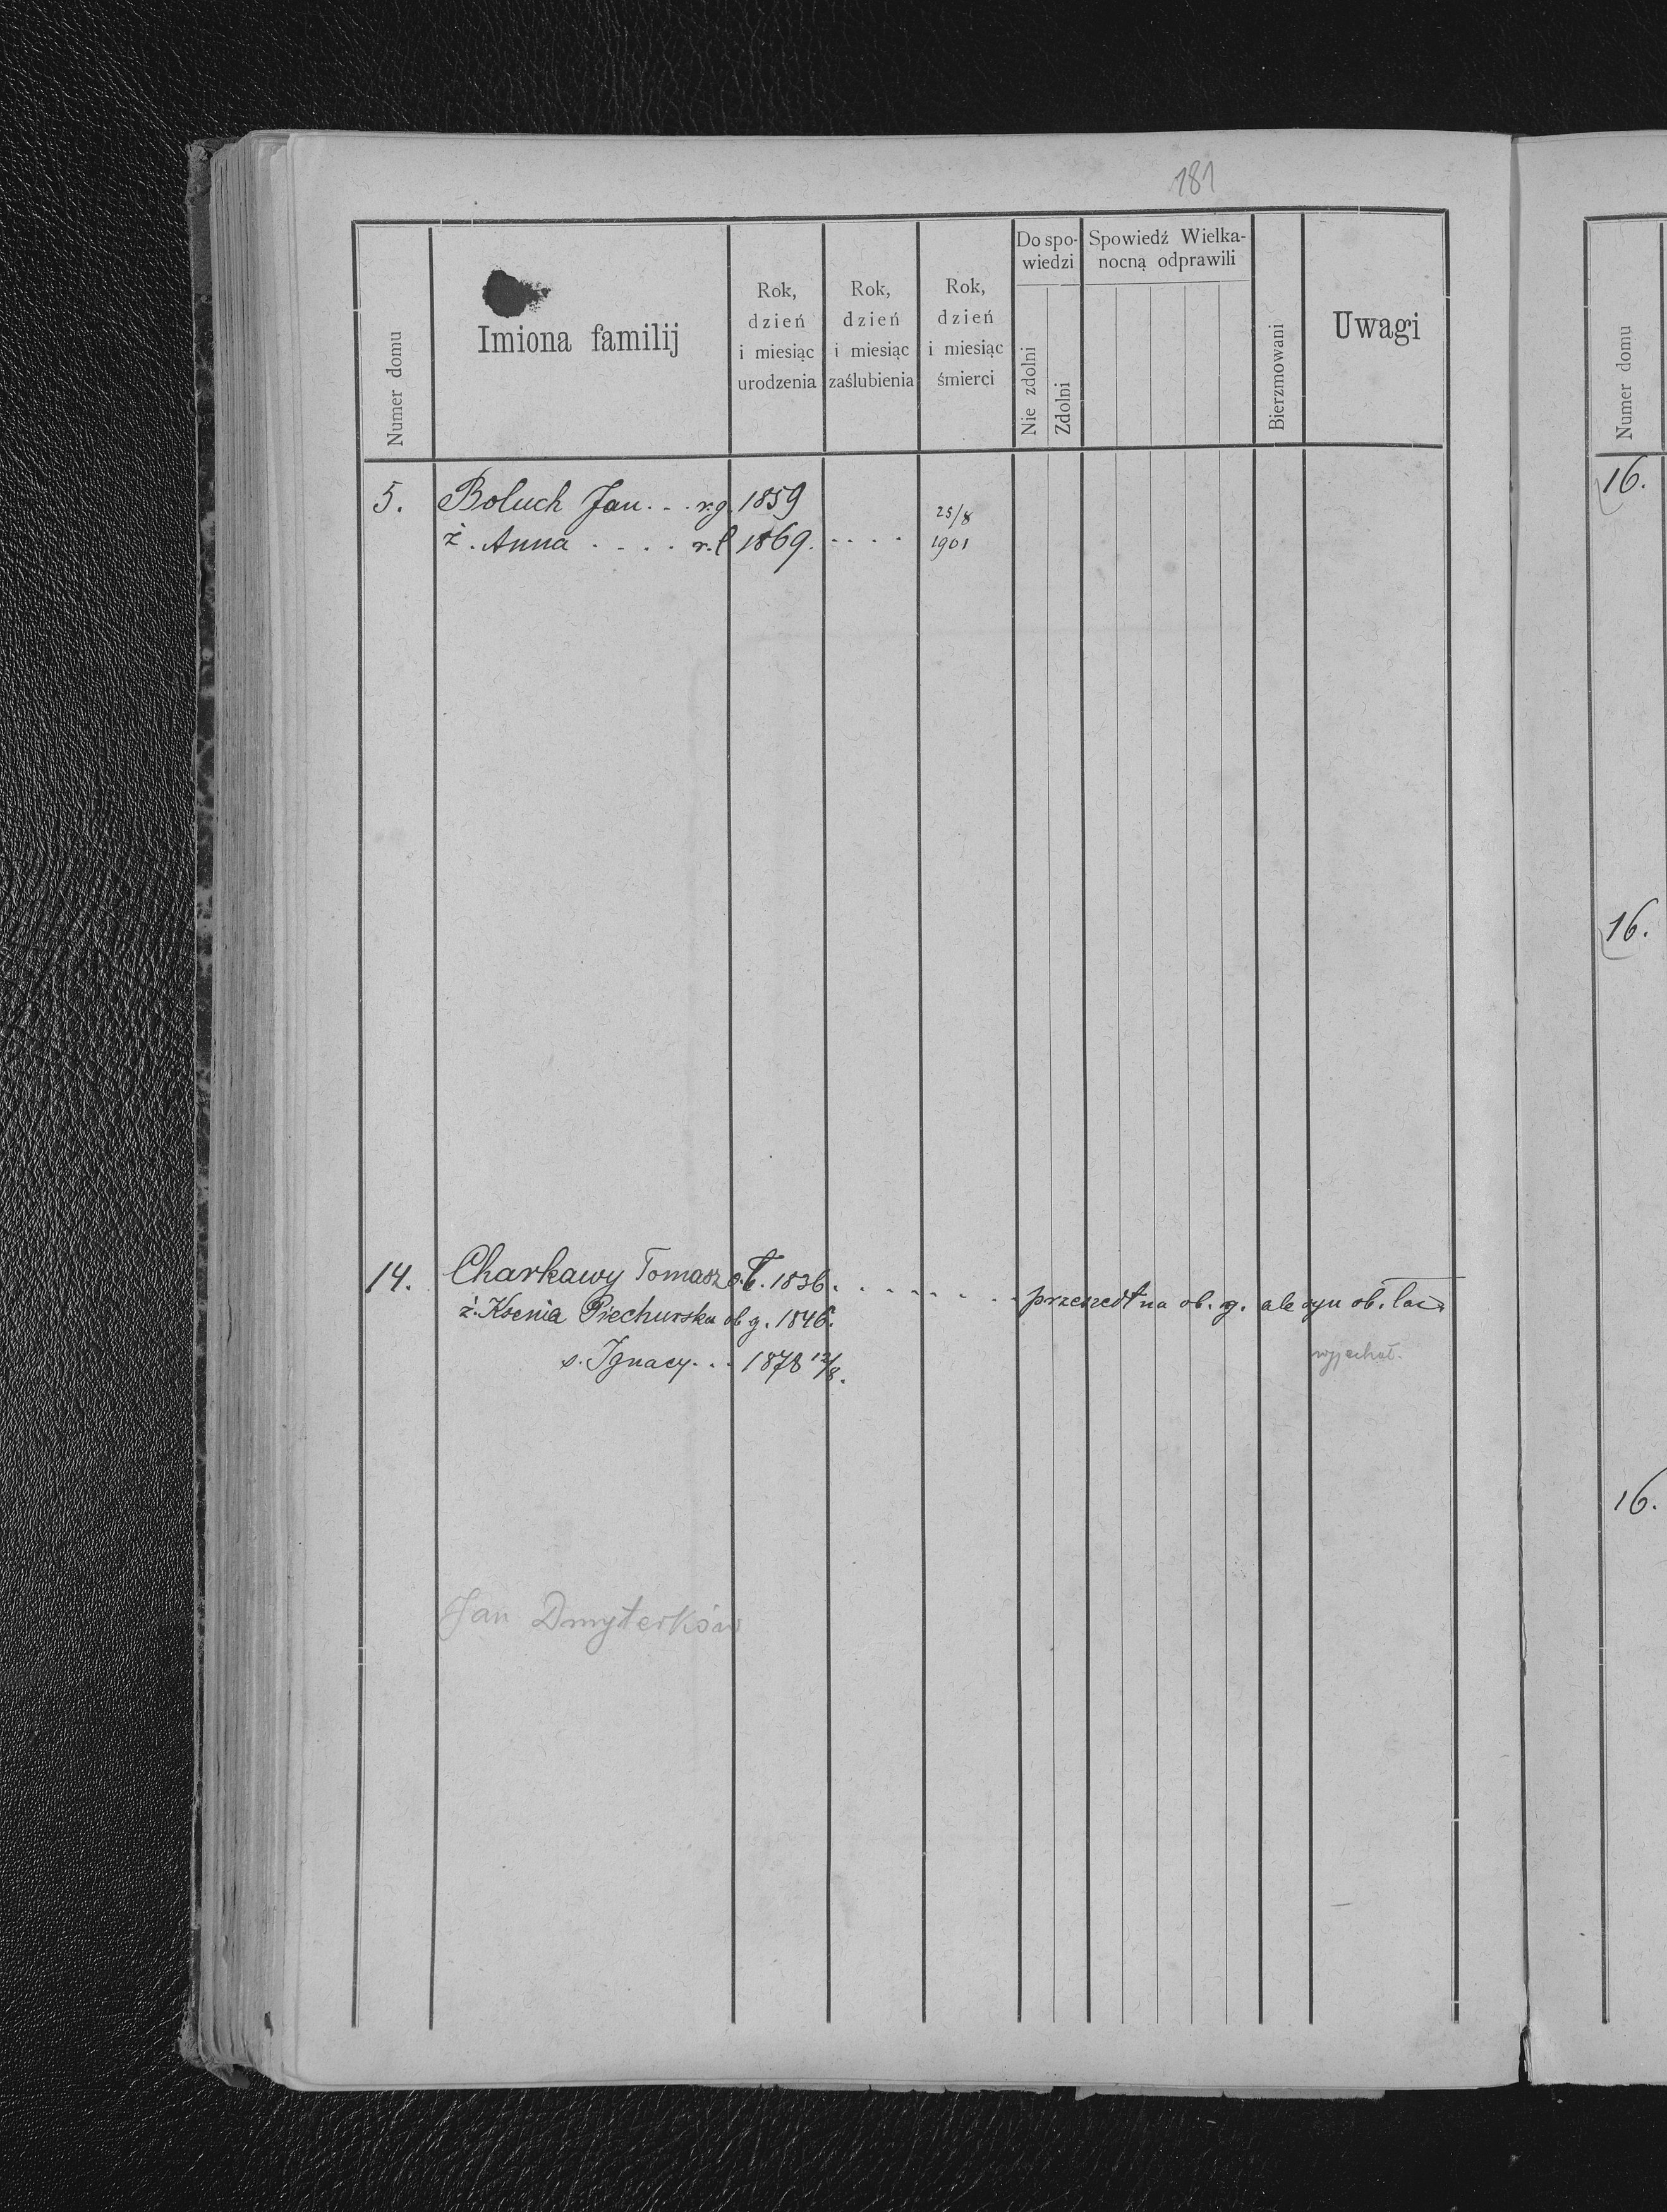 181
Numer domu
Imiona familij
Rok, dzień i miesiąc urodzenia
Rok, dzień i miesiąc zaślubienia
Rok, dzień i miesiąc śmierci
Do spo-
wiedzi
Nie zdolni
Zdolni
Spowiedź Wielka-
nocną odprawili
Bierzmowani
Uwagi
5. Boluch Jan . . . r.g. 1859
ż. Anna . . . . r.ł 1869. . . . . 25/8 1901
14. Charkawy Tomasz o.ł. 1836. . . . . . . . przeszedł na ob. g. ale syn ob. łac
ż. Ksenia Piechurska ob g. 1846.
s. Ignacy . . . 1878 12/8. wyjechał.
Jan Dmyterków
Numer domu
16.
16.
16.